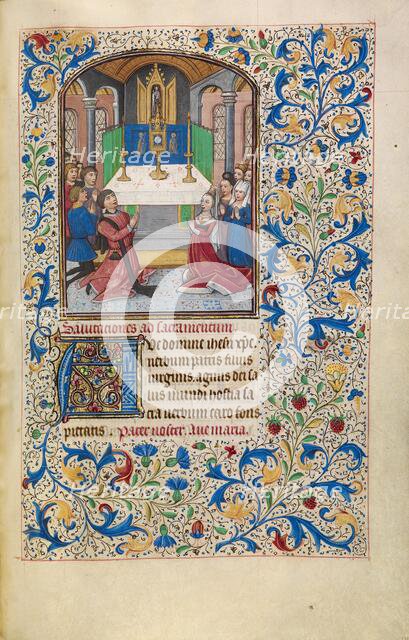 Salutaciones ad sacramentum
AVe domine ihesu xpe,
uerbum patris filius
uirginis, agnus dei sa
lus mundi hostia sa
cra uerbum caro fons
pietatis. Pater noster. Aue maria.
Heritage